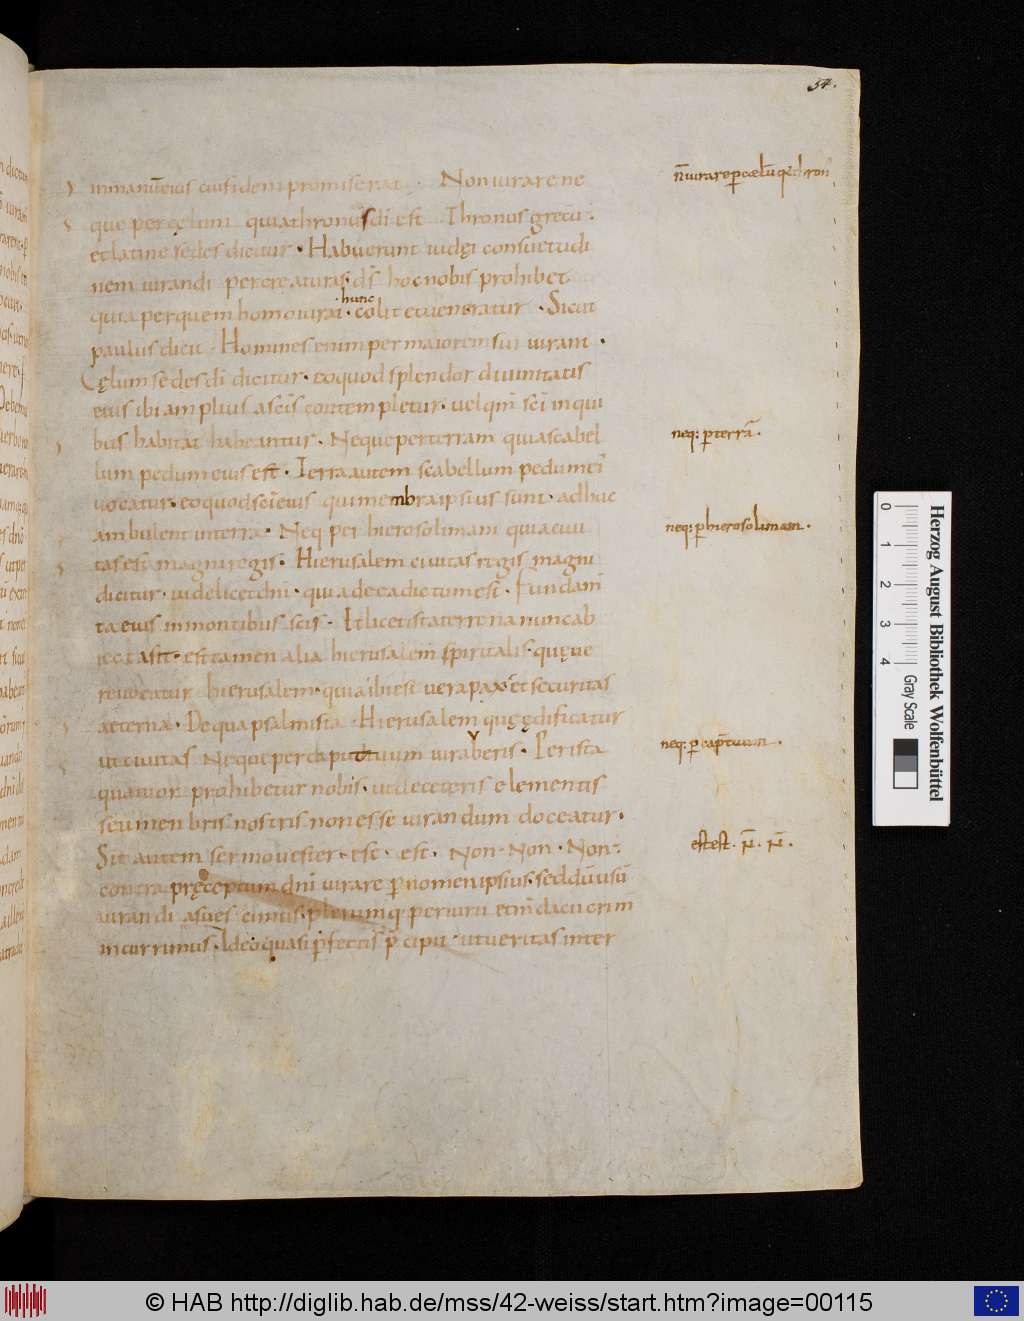 54.
in manu eius cui fidem promiserat. Non iurare ne
que per cęlum quia thronus di est. Thronus grecu
et latine sedes dicitur. Habuerunt iudęi consuetudi
nem iurandi per creaturas. ds hoc nobis prohibet.
quia per quem homo iurat. hunc colit et veneratur. Sicut
paulus dicit. Homines enim per maiorem sui iurant.
Cęlum sedes di dicitur. eo quod splendor divinitatis
eius ibi amplius a scis contempletur. vel qm sci in qui
bus habitat habeantur. Neque per terram quia scabel
lum pedum eius est. Terra autem scabellum pedum ei
vocatur. eo quod sci eius qui membra ipsius sunt. adhuc
ambulent in terra. Neq per hierosolimam quia civi
tas est magni regis. Hierusalem civitas regis magni
dicitur. videlicet dni. quia de ea dictum est. Fundam
ta eius in montibus scis. Et licet ista terrena nunc ab
iecta sit. est tamen alia hierusalem spiritalis. quę ue
re vocatur hierusalem. quia ibi est uera pax et securitas
aeterna. De qua psalmista. Hierusalem quę ędificatur
ut civitas. Neque per caput tuum iuraberis. Per ista
quatuor prohibetur nobis. ut de ceteris elementis
seu membris nostris non esse iurandum doceatur.
Sit autem sermo vester. est. est. Non. Non. Non.
contra pręceptum dni iurare p nomen ipsius. sed dū usū
iurandi asues cimus. plerumq periurii et mdacii crim
incurrimus. Ideo quasi pfectis pcipit. ut veritas inter
n iurare p cęlū q thron
neq: p terrā.
neq: p hierosolimam.
neq: p capt tuum.
est est. n. n.
Herzog August Bibliothek Wolfenbüttel
Gray Scale
0 1 2 3 4
© HAB http://diglib.hab.de/mss/42-weiss/start.htm?image=00115